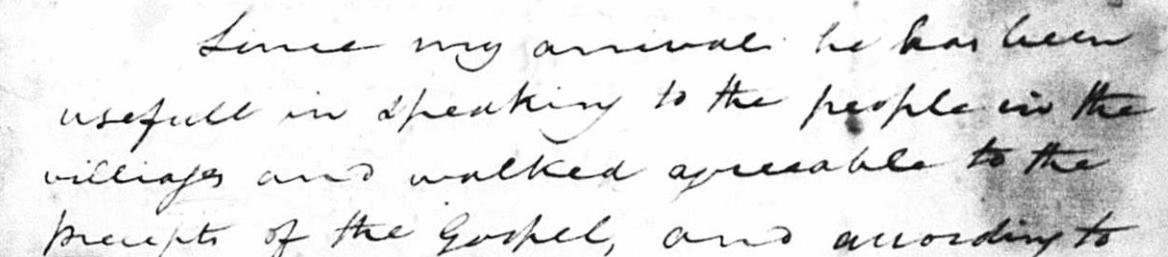 Since my arrival he has been
usefull in speaking to the people in the
villages and walked agreeable to the
precepts of the Gospel, and according to